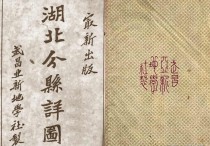 最新出版
湖北分縣詳圖
武昌亞新地學社製